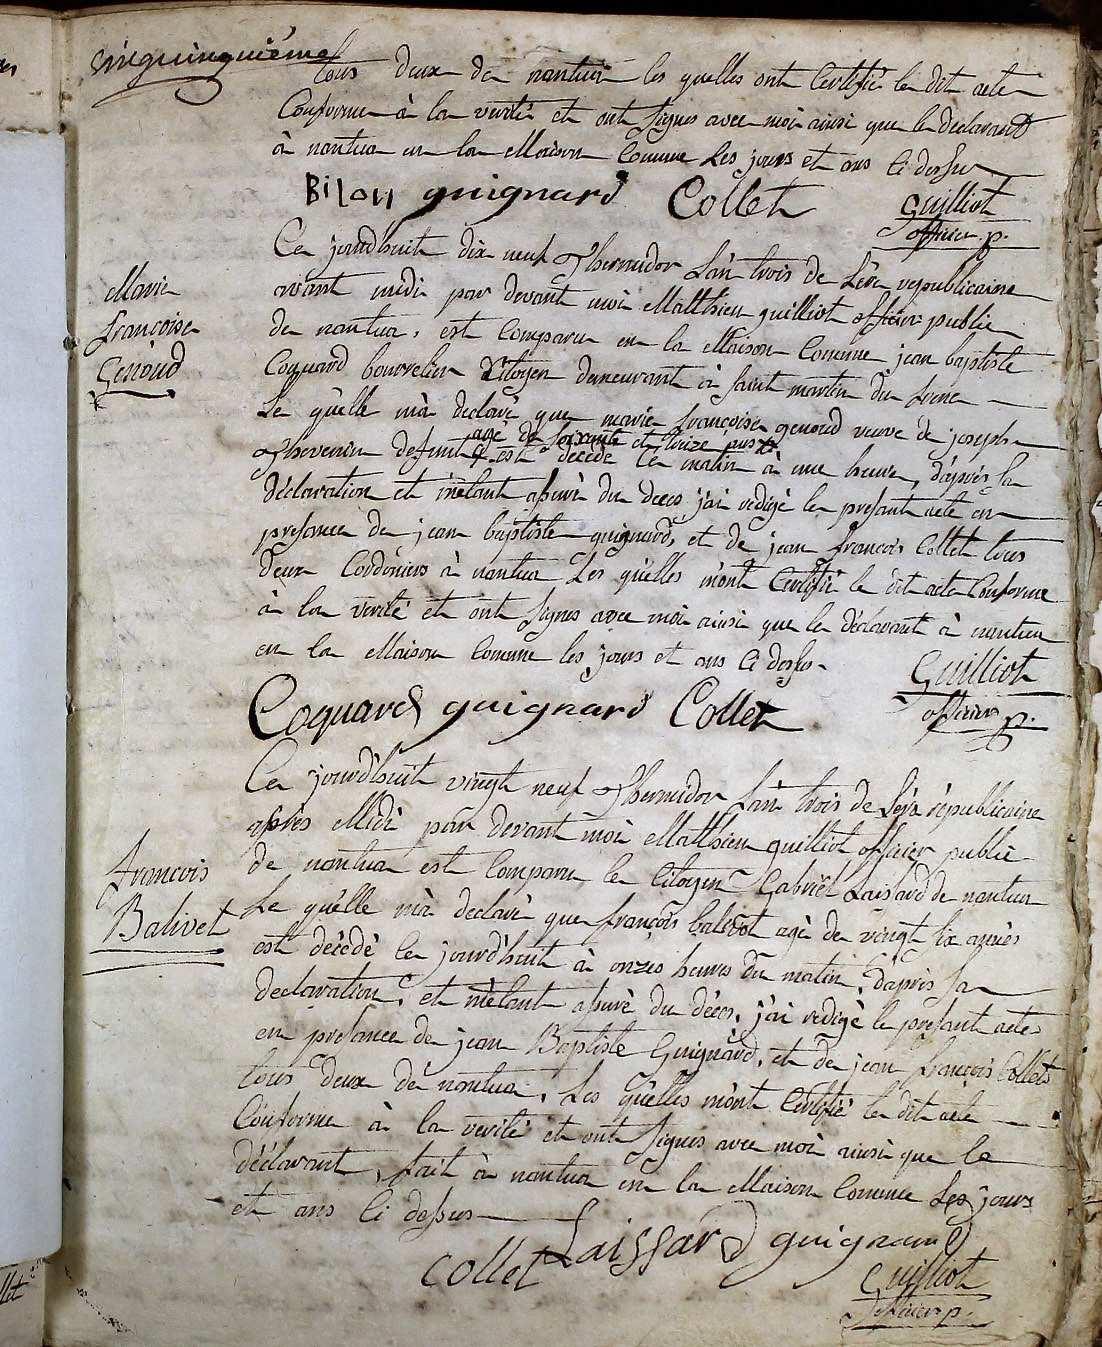 cinquinquiéme
tous deux de nantua les quelles ont Certifié le dit acte
Conforme à la verité et ont signes avec moi ainsi que le declarant
à nantua en la Maison Comune les jours et ans Ci dessu
Bilon guignard Collet Guilliot
officier p.
Marie
françoise
Genoud
Ce jourd'huit dix neuf Thermidor L'an trois de L'ére republicaine
avant midi par devant moi Matthieu guilliot officier public
de nantua, est Comparu en la Maison Comune jean baptiste
Coquard bourrelier Citoyen demeurant à saint martin du frene
Le quélle m'à declaré que marie françoise genoud veuve de joseph
agé de soixante et treize ans
Thevenin defunt est décédé Ce matin à une heure, d'aprés sa
déclaration et m'étant assuré du deces j'ai redigé le present acte en
presance de jean baptiste guignard, et de jean françois Collet tous
deux Cordoniers à nantua Les quélles m'ont Certifié le dit acte Conforme
à la verité et ont signes avec moi ainsi que le déclarant à nantua
en la Maison Comune les jours et ans Ci dessus
Coquard guignard Collet Guilliot
officier p.
françois
Balivet
Ce jourd'huit vingt neuf Thermidor L'an trois de L'ére républicaine
aprés Midi par devant moi Matthieu guilliot officier public
de nantua est Comparu le Citoyen Gabriël Laissard de nantua
Le quélle m'à declaré que françois balivet agé de vingt six années
est décédé Ce jourd'huit à onzes heures du matin, d'aprés sa
declaration, et m'étant assuré du déces, j'ai redigé le present acte
en presance de jean Baptiste Guignard, et de jean françois Collet
tous deux de nantua, Les quélles m'ont Certifié le dit acte
Conforme à la verité et ont signes avec moi ainsi que le
déclarant, fait à nantua en la Maison Comune Les jours
et ans Ci dessus
Collet Laissard guignard
Guilliot
officier p.